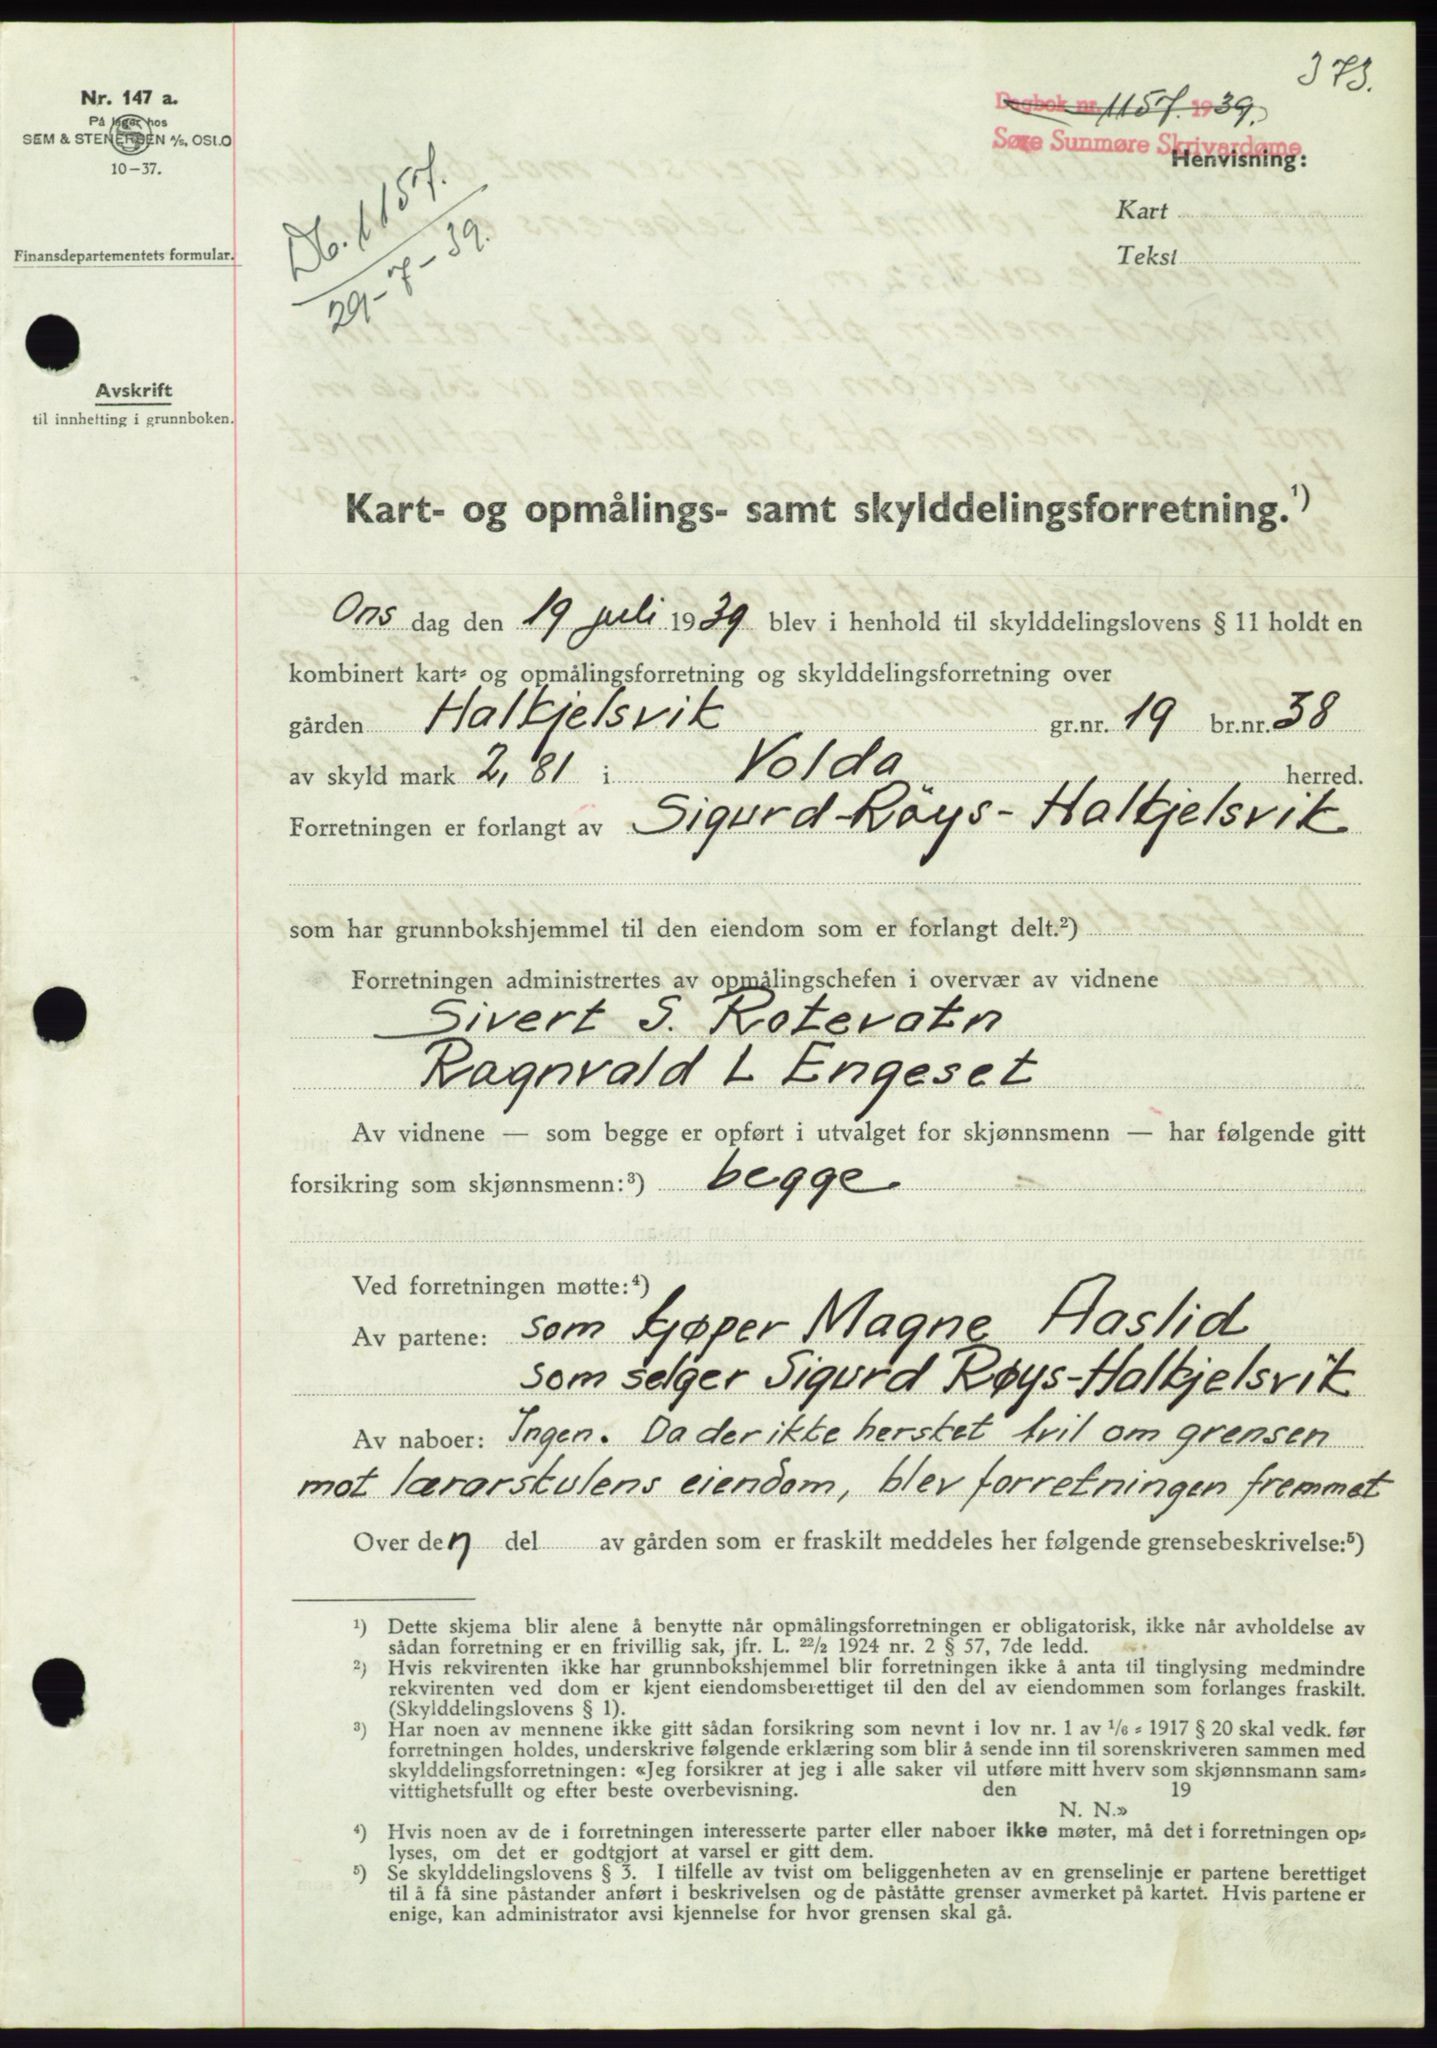 373.
Nr. 147 a.
På lager hos
SEM & STENERSEN A/S, OSLO
10-37.
Dagbok nr. 1157. 1939.
Søre Sunmøre Skrivardøme
Henvisning:
Kart
Tekst
Db. 1157.
29-7-39.
Finansdepartementets formular.
Avskrift
til innhefting i grunnboken.
Kart- og opmålings- samt skylddelingsforretning.¹)
Ons dag den 19 juli 1939 blev i henhold til skylddelingslovens § 11 holdt en
kombinert kart- og opmålingsforretning og skylddelingsforretning over
gården Halkjelsvik gr.nr. 19 br.nr. 38
av skyld mark 2,81 i Volda herred.
Forretningen er forlangt av Sigurd-Röys-Halkjelsvik
som har grunnbokshjemmel til den eiendom som er forlangt delt.²)
Forretningen administrertes av opmålingschefen i overvær av vidnene
Sivert S. Rotevatn
Ragnvald L Engeset
Av vidnene — som begge er opført i utvalget for skjønnsmenn — har følgende gitt
forsikring som skjønnsmenn:³) begge
Ved forretningen møtte:⁴)
Av partene: som kjøper Magne Aaslid
som selger Sigurd Røys-Halkjelsvik
Av naboer: Ingen. Da der ikke hersket tvil om grensen
mot lærarskulens eiendom, blev forretningen fremmet
Over den del av gården som er fraskilt meddeles her følgende grensebeskrivelse:⁵)
¹) Dette skjema blir alene å benytte når opmålingsforretningen er obligatorisk, ikke når avholdelse av
sådan forretning er en frivillig sak, jfr. L. 22/2 1924 nr. 2 § 57, 7de ledd.
²) Hvis rekvirenten ikke har grunnbokshjemmel blir forretningen ikke å anta til tinglysing medmindre
rekvirenten ved dom er kjent eiendomsberettiget til den del av eiendommen som forlanges fraskilt.
(Skylddelingslovens § 1).
³) Har noen av mennene ikke gitt sådan forsikring som nevnt i lov nr. 1 av 1/6 - 1917 § 20 skal vedk. før
forretningen holdes, underskrive følgende erklæring som blir å sende inn til sorenskriveren sammen med
skylddelingsforretningen: «Jeg forsikrer at jeg i alle saker vil utføre mitt hverv som skjønnsmann sam-
vittighetsfullt og efter beste overbevisning. den 19
N. N.»
⁴) Hvis noen av de i forretningen interesserte parter eller naboer ikke møter, må det i forretningen op-
lyses, om det er godtgjort at varsel er gitt dem.
⁵) Se skylddelingslovens § 3. I tilfelle av tvist om beliggenheten av en grenselinje er partene berettiget
til å få sine påstander anført i beskrivelsen og de påståtte grenser avmerket på kartet. Hvis partene er
enige, kan administrator avsi kjennelse for hvor grensen skal gå.